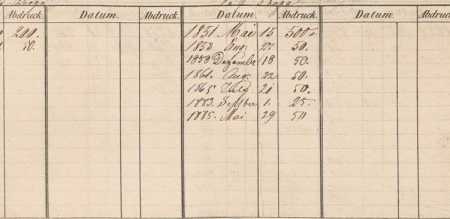 Abdruck. Datum. Abdruck. Datum. Abdruck. Datum. Abdruck.
200. 1851 Mai 15 500
50. 1853 Aug. 22 50.
1859 Dezember 18 50.
1861. Aug. 22 50.
1865 July 20 50.
1883. Septber 1. 25.
1885. Mai 29 50